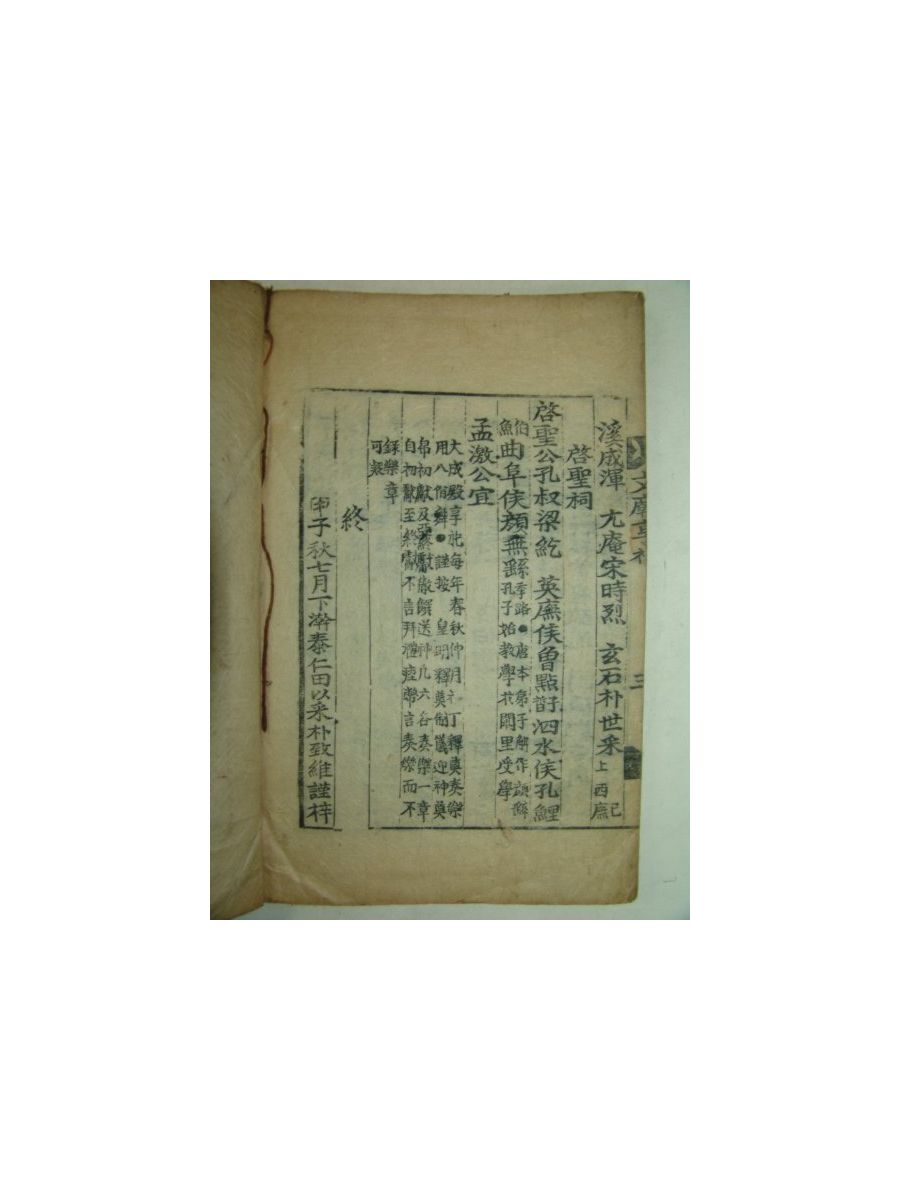 文廟享祀 三
溪成渾 尤庵宋時烈 玄石朴世采 上西廡已
啓聖祠
啓聖公孔叔梁紇 英廉侯曾點晳子 泗水侯孔鯉
伯魚 曲阜侯顔無繇季路●唐本弟子解作顔繇孔子始敎學於闕里受學
孟激公宜
大成殿享祀每年春秋仲月上丁釋奠奏樂
用八佾舞●謹按 皇明釋奠制儀迎神奠
帛初獻及亞終獻徹饌送神凡六各奏樂一章
自初獻至終獻不言拜禮痤聮言奏樂而不
錄樂章
可疑
終
甲子秋七月下澣泰仁田以采朴致維謹梓